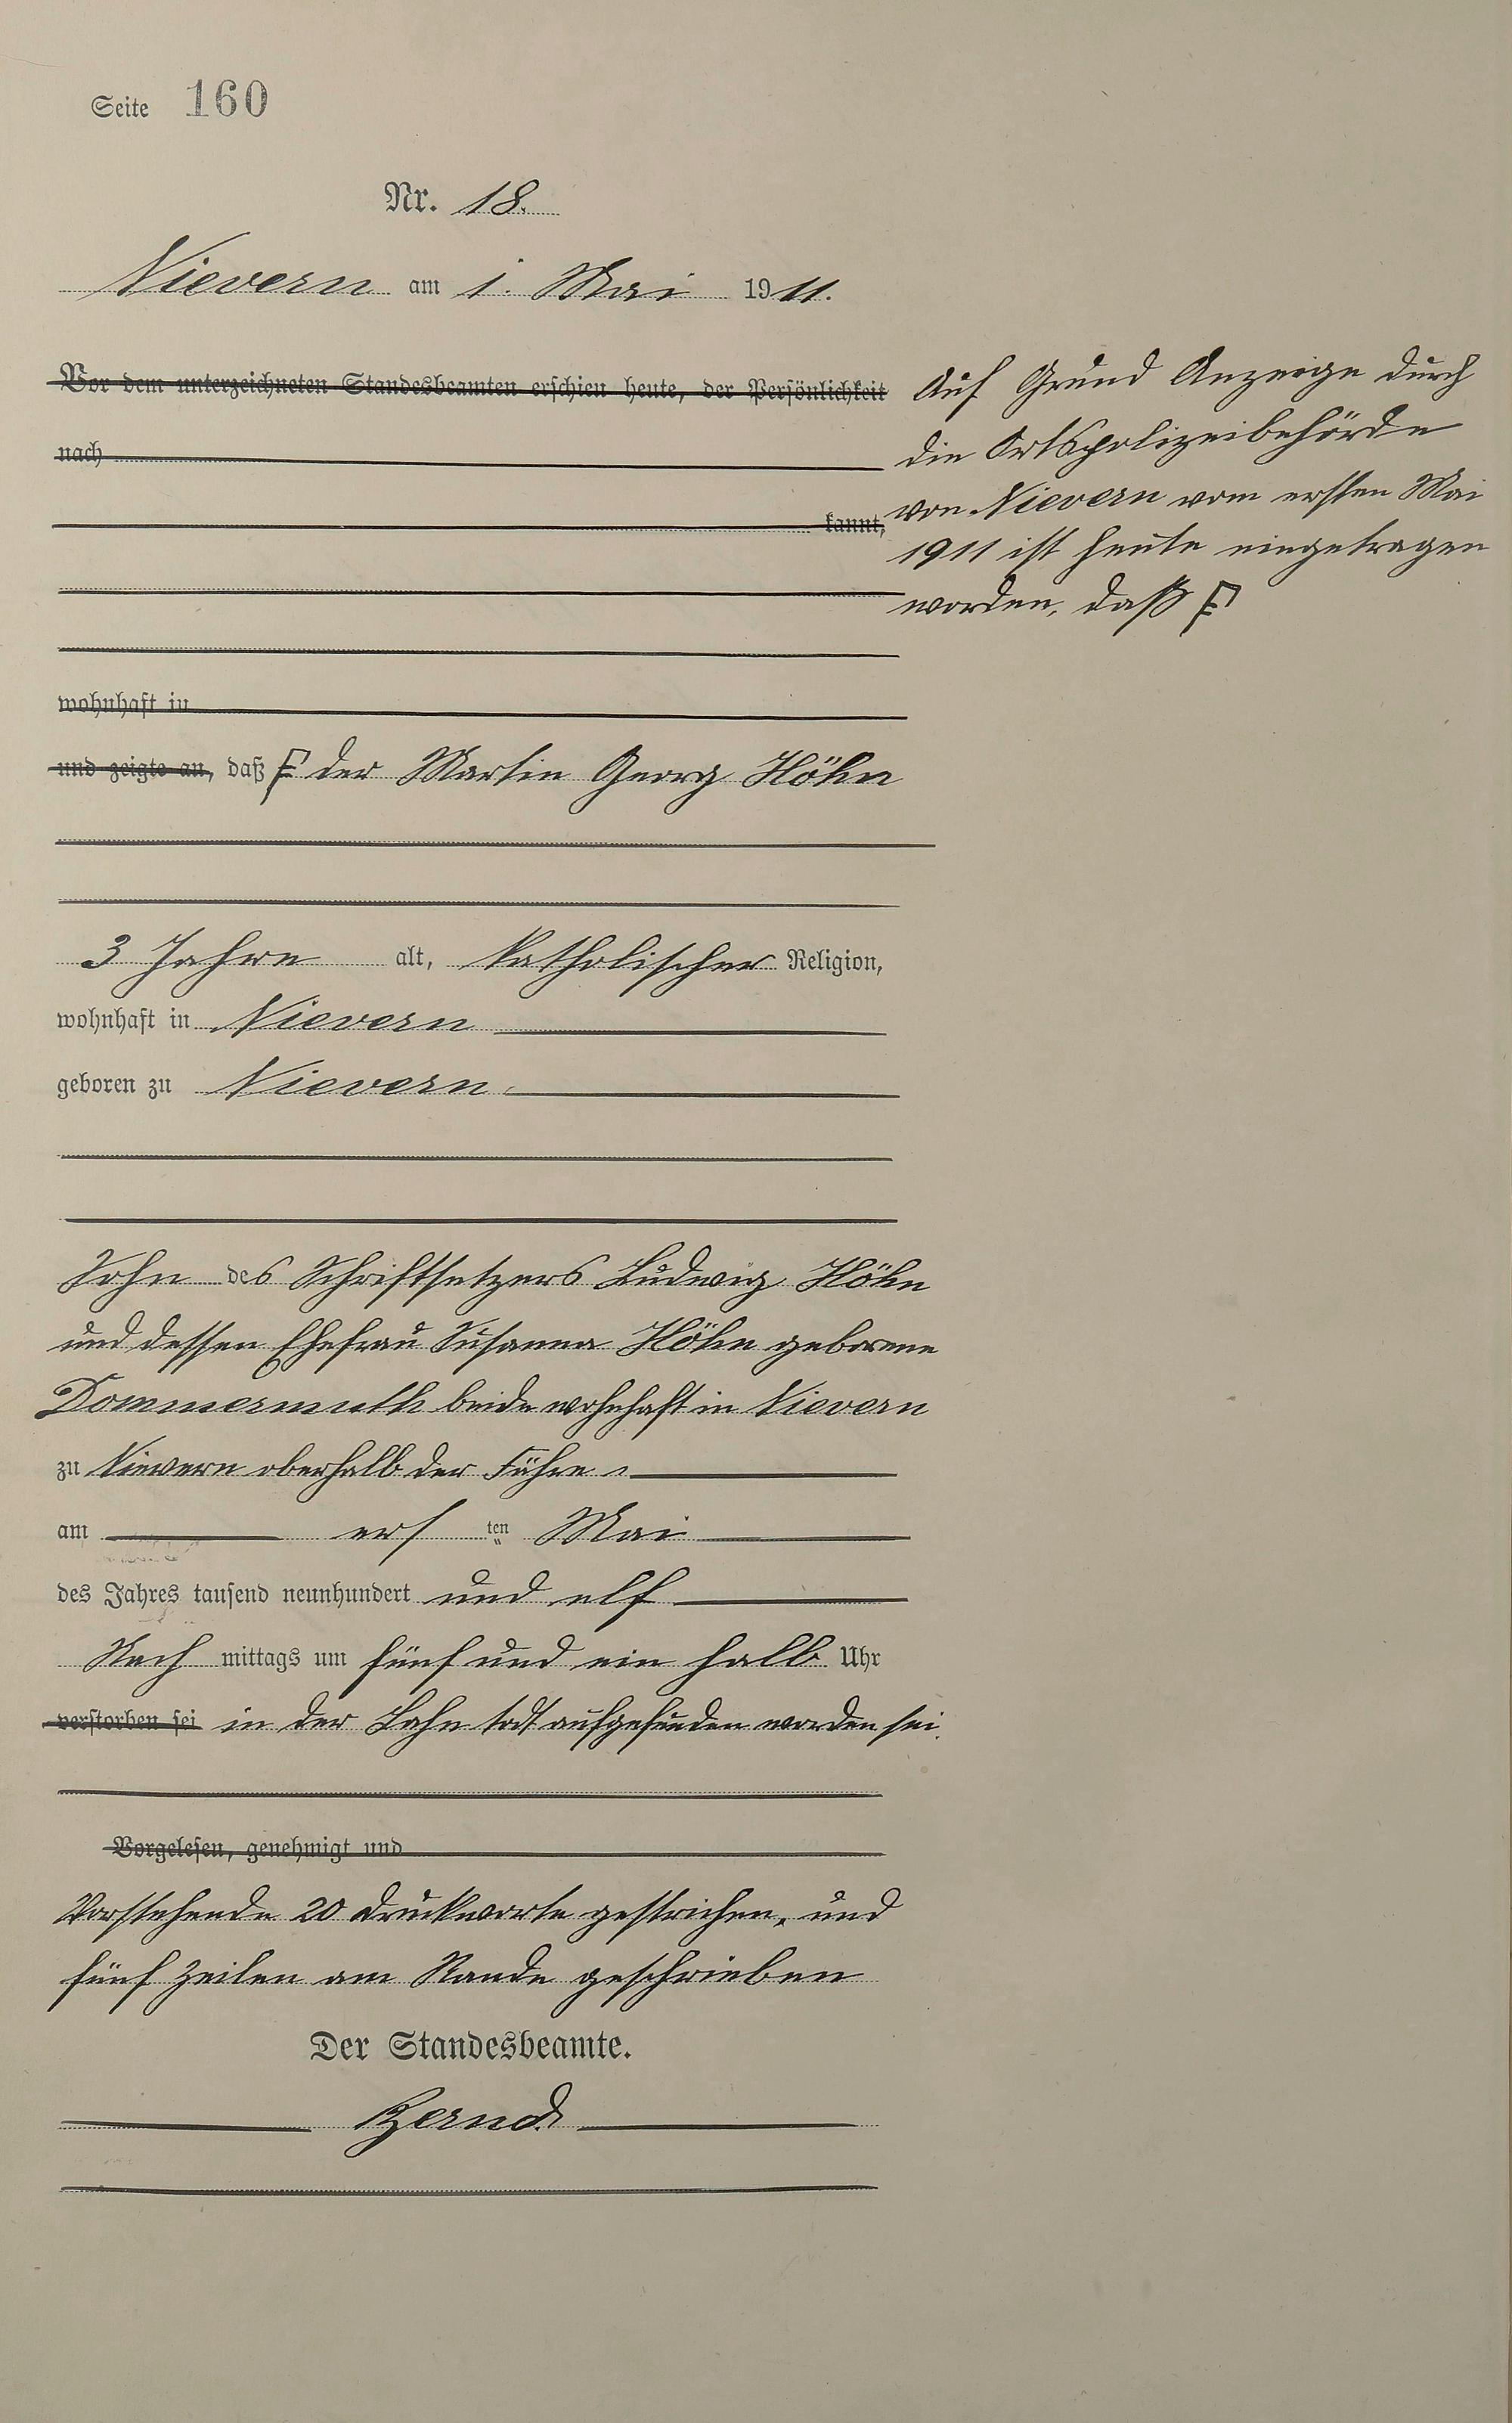 Seite 160
Nr. 18.
Nievern am 1. Mai 1911.
Vor dem unterzeichneten Standesbeamten erschien heute, der Persönlichkeit
nach
kannt,
Auf Grund Anzeige durch
die Ortspolizeibehörde
von Nievern vom ersten Mai
1911 ist heute eingetragen
worden, daß
wohnhaft in
und zeigte an, daß der Martin Georg Höhn
3 Jahre alt, katholischer Religion,
wohnhaft in Nievern
geboren zu Nievern
Sohn des Schriftsetzers Ludwig Höhn
und dessen Ehefrau Susanna Höhn geborene
Dommermuth beide wohnhaft in Nievern
zu Nievern oberhalb der Fähre
am ersten Mai
des Jahres tausend neunhundert und elf
Nachmittags um fünf und ein halb Uhr
verstorben sei in der Lahn todt aufgefunden worden sei.
Vorgelesen, genehmigt und
Vorstehende 20 Druckworte gestrichen, und
fünf Zeilen am Rande geschrieben
Der Standesbeamte.